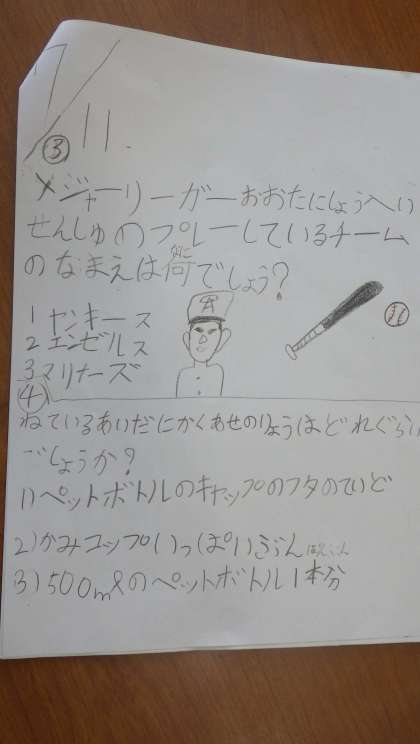 7/11.
③
メジャーリーガーおおたにしょうへい
せんしゅのプレーしているチーム
のなまえは何でしょう?
なに
1 ヤンキース
2 エンゼルス
3 マリナーズ
④
ねているあいだにかくあせのりょうはどれぐらい
でしょうか?
1)ペットボトルのキャップのフタのていど
2)かみコップいっぱいぶん
3)500mlのペットボトル1本分